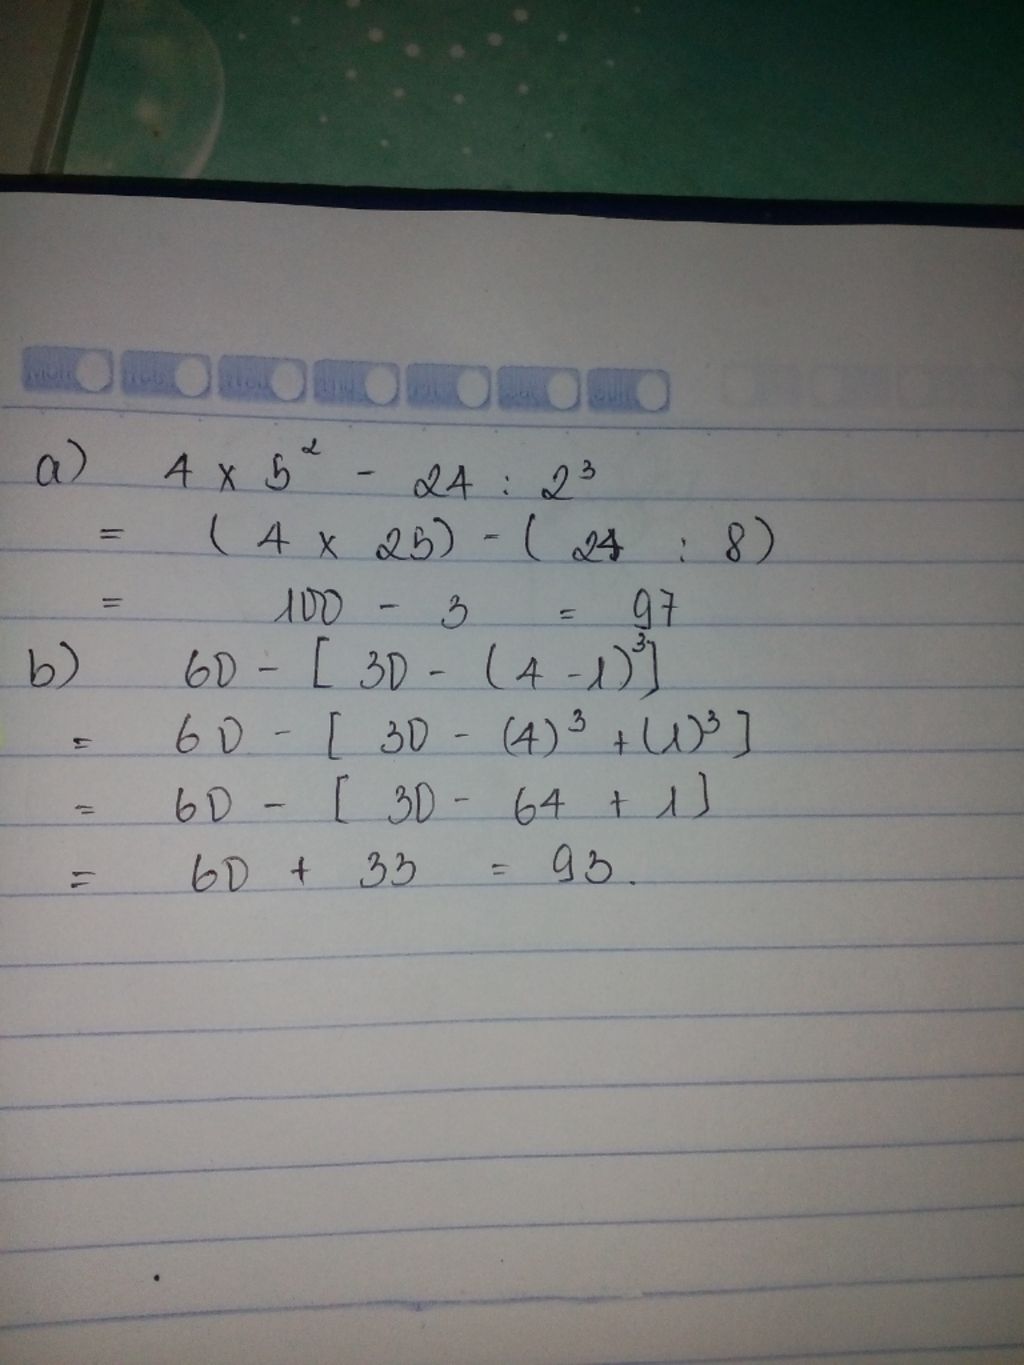 a) 4 x 5² - 24 : 2³
= (4 x 25) - (24 : 8)
= 100 - 3 = 97
b) 60 - [30 - (4 - 1)³]
= 60 - [30 - (4)³ + (1)³]
= 60 - [30 - 64 + 1]
= 60 + 33 = 93.